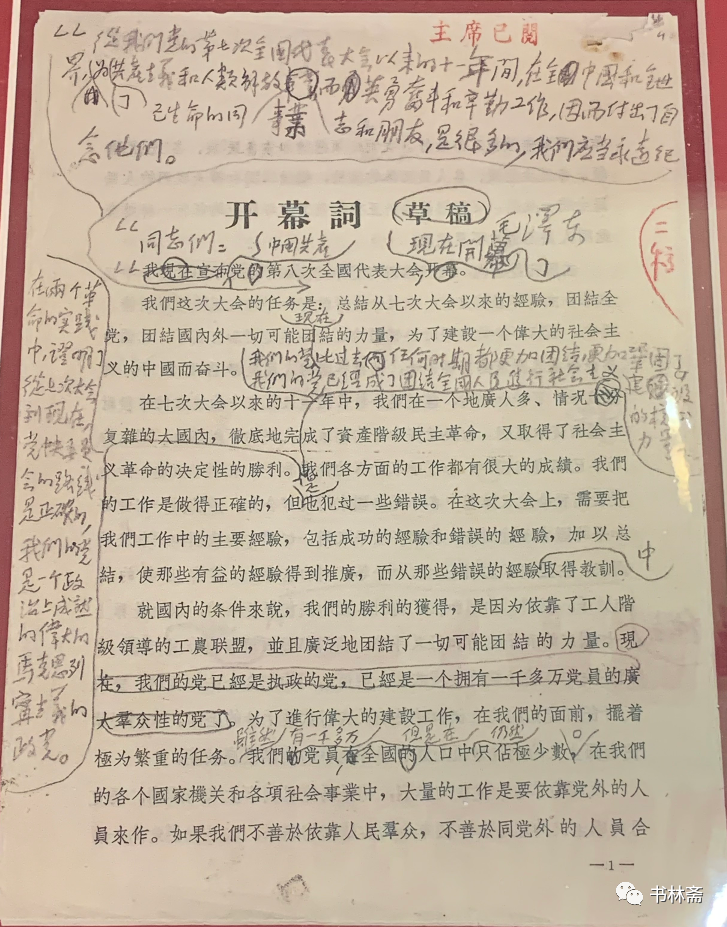 主席已閱
從我們党的第七次全國代表大会以来的十一年間，在全中國和全世
界为共产主義和人類解放事業而英勇奮斗和辛勤工作，因而付出了自
己生命的同志和朋友，是很多的，我們应当永远紀
念他們。
开幕詞（草稿）
毛澤东
二稿
同志們：
中國共產
現在開幕
我現在宣布党的第八次全國代表大会开幕。
我們这次大会的任务是：总結从七次大会以来的經驗，团結全
党，团結國內外一切可能团結的力量，为了建設一个偉大的社会主
义的中國而奋斗。
現在
我們的党比过去任何时期都更加团結，更加鞏固
我們的党已經成了团結全國人民進行社会主义
建設的核心力
在七次大会以来的十一年中，我們在一个地廣人多、情况十分
复雜的大國內，徹底地完成了資產階級民主革命，又取得了社会主
义革命的决定性的勝利。我們各方面的工作都有很大的成績。我們
的工作是做得正確的，但也犯过一些錯誤。在这次大会上，需要把
我們工作中的主要經驗，包括成功的經驗和錯誤的經驗，加以总
結，使那些有益的經驗得到推廣，而从那些錯誤的經驗取得教訓。
中
在兩个革
命的实践
中，證明了
從七次大会
到現在，
党中央委員
会的路綫
是正確的，
我們的党
是一个政
治上成熟
的偉大的
馬克思列
寧主義的
政党。
就國內的条件來說，我們的勝利的獲得，是因为依靠了工人階
級領導的工農联盟，並且廣泛地团結了一切可能团結的力量。現
在，我們的党已經是执政的党，已經是一个拥有一千多万党員的廣
大羣众性的党了。为了進行偉大的建設工作，在我們的面前，擺着
雖然 有一千多万 但是在 仍然
極为繁重的任务。我們的党員在全國的人口中只佔極少數，在我們
的各个國家机关和各項社会事業中，大量的工作是要依靠党外的人
員來作。如果我們不善於依靠人民羣众，不善於同党外的人員合
—1—
书林斋